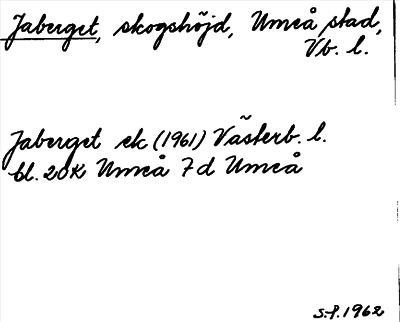 Jaberget, skogshöjd, Umeå stad,
Vb. l.
Jaberget ek (1961) Västerb. l.
bl. 20K Umeå 7d Umeå
S.f. 1962